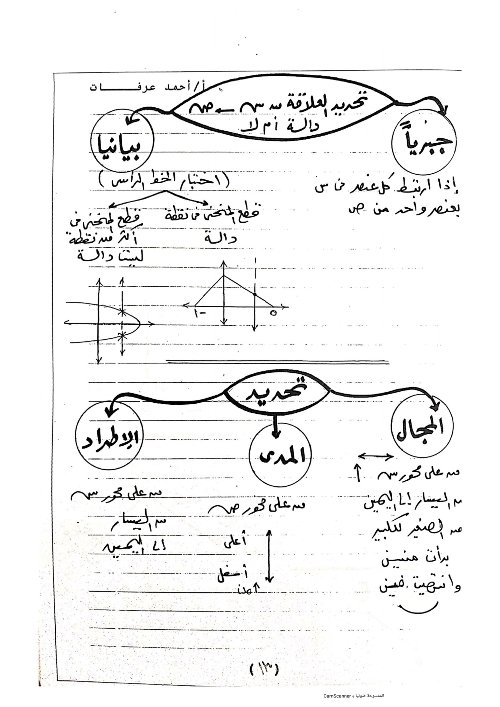 أ/أحمد عرفات
تحديد العلاقة من س ← ص
دالة أم لا
جبرياً
بيانيا
إذا ارتبط كل عنصر من س
بعنصر واحد من ص
(اختبار الخط الرأسى)
قطع المنحنى فى نقطة
دالة
قطع المنحنى فى
أكثر من نقطة
ليست دالة
٥
تحديد
المجال
المدى
الإطراد
من على محور س
من اليسار إلى اليمين
من الصغير للكبير
بدأت منين
وانتهيت فين
من على محور ص
أعلى
أسفل
من على محور س
من اليسار
إلى اليمين
(١٣)
الممسوحة ضوئيا بـ CamScanner